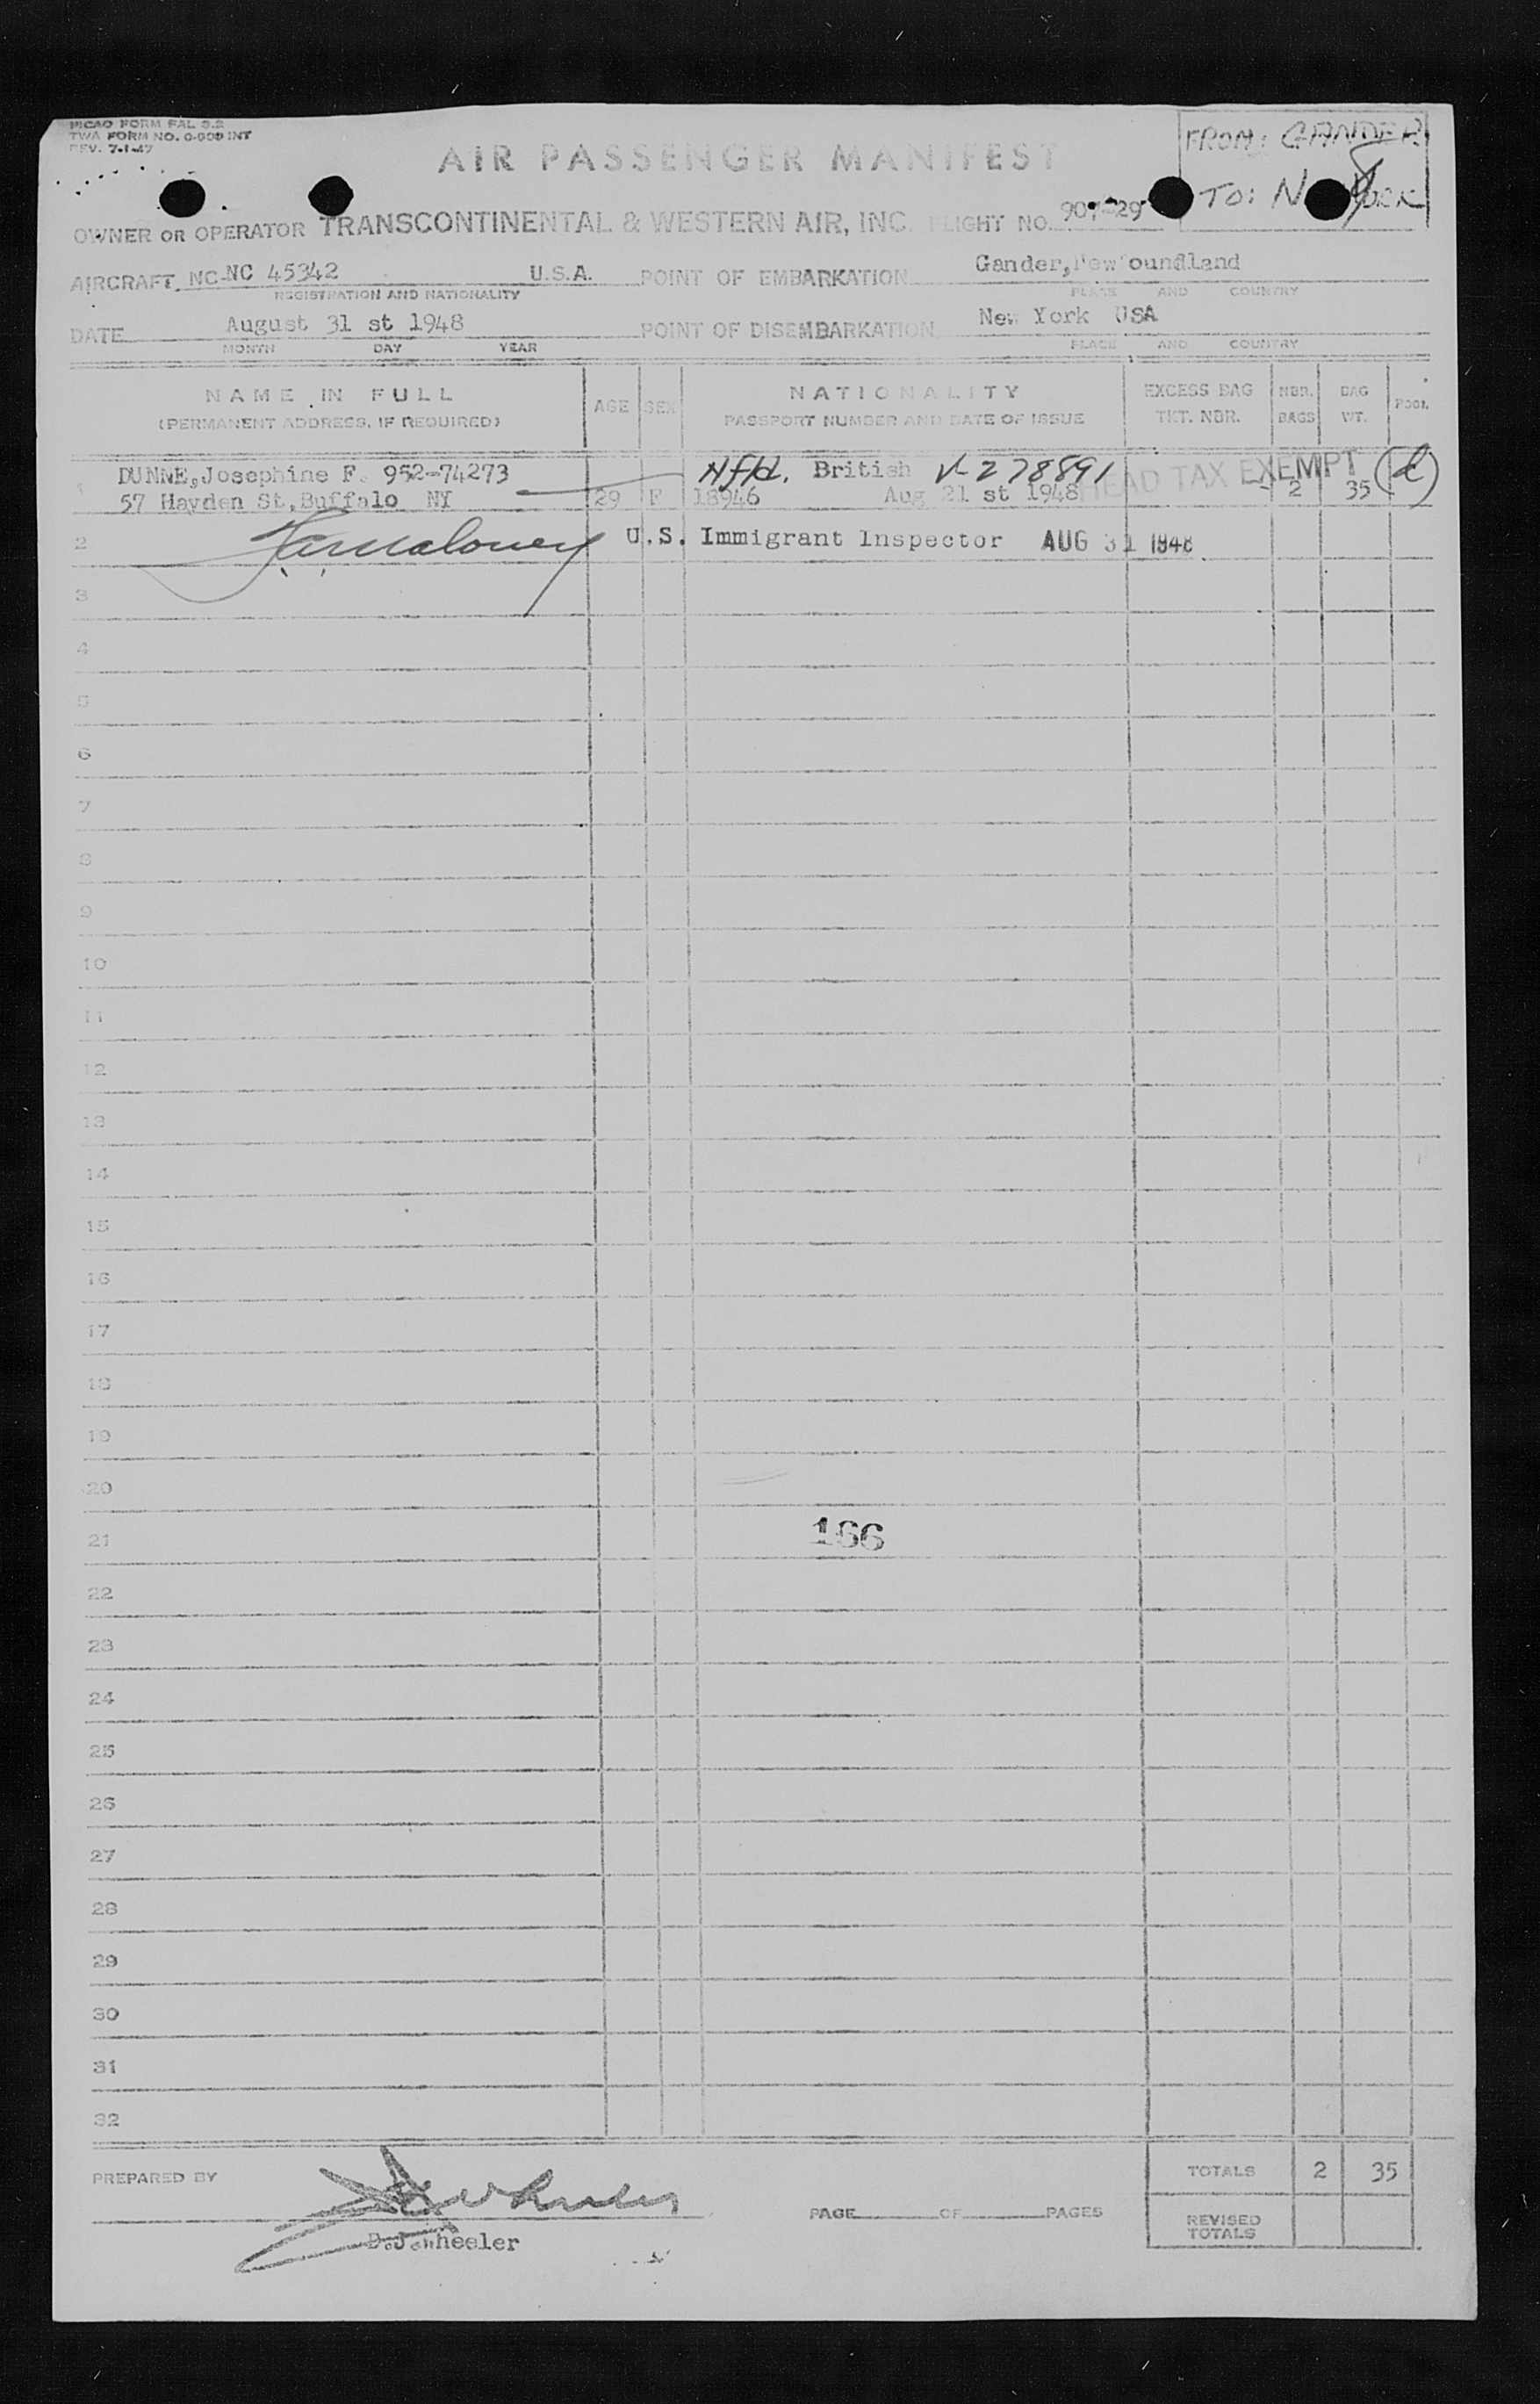 PICAO FORM FAL 3.2
TWA FORM NO. 0-909 INT
REV. 7-1-47
FROM: GANDER
TO: N YORK
AIR PASSENGER MANIFEST
OWNER OR OPERATOR TRANSCONTINENTAL & WESTERN AIR, INC. FLIGHT NO. 907-29
AIRCRAFT NC-NC 45342 U.S.A. POINT OF EMBARKATION Gander, Newfoundland
REGISTRATION AND NATIONALITY PLACE AND COUNTRY
DATE August 31 st 1948 POINT OF DISEMBARKATION New York USA
MONTH DAY YEAR PLACE AND COUNTRY
NAME IN FULL (PERMANENT ADDRESS, IF REQUIRED) AGE SEX NATIONALITY PASSPORT NUMBER AND DATE OF ISSUE EXCESS BAG TKT. NBR. NBR. BAGS BAG WT. POOL
1 DUNNE, Josephine F. 952-74273 Nfld. British V-278891 HEAD TAX EXEMPT
57 Hayden St, Buffalo NY 29 F 18946 Aug 21 st 1948 2 35
2 U.S. Immigrant Inspector AUG 31 1948
3
4
5
6
7
8
9
10
11
12
13
14
15
16
17
18
19
20
21 166
22
23
24
25
26
27
28
29
30
31
32
TOTALS 2 35
PREPARED BY
PAGE OF PAGES
REVISED TOTALS
D.J. Wheeler